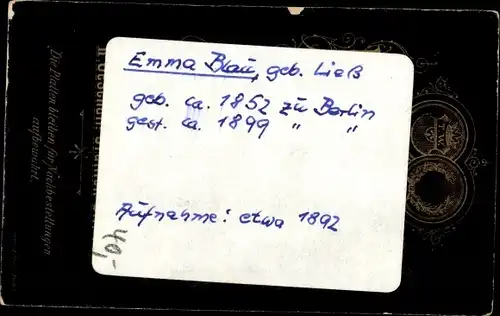 Emma Blau, geb. Ließ
geb. ca. 1852 zu Berlin
gest. ca. 1899 " "
Aufnahme: etwa 1892
40,-
Die Platten bleiben für Nachbestellungen
aufbewahrt.